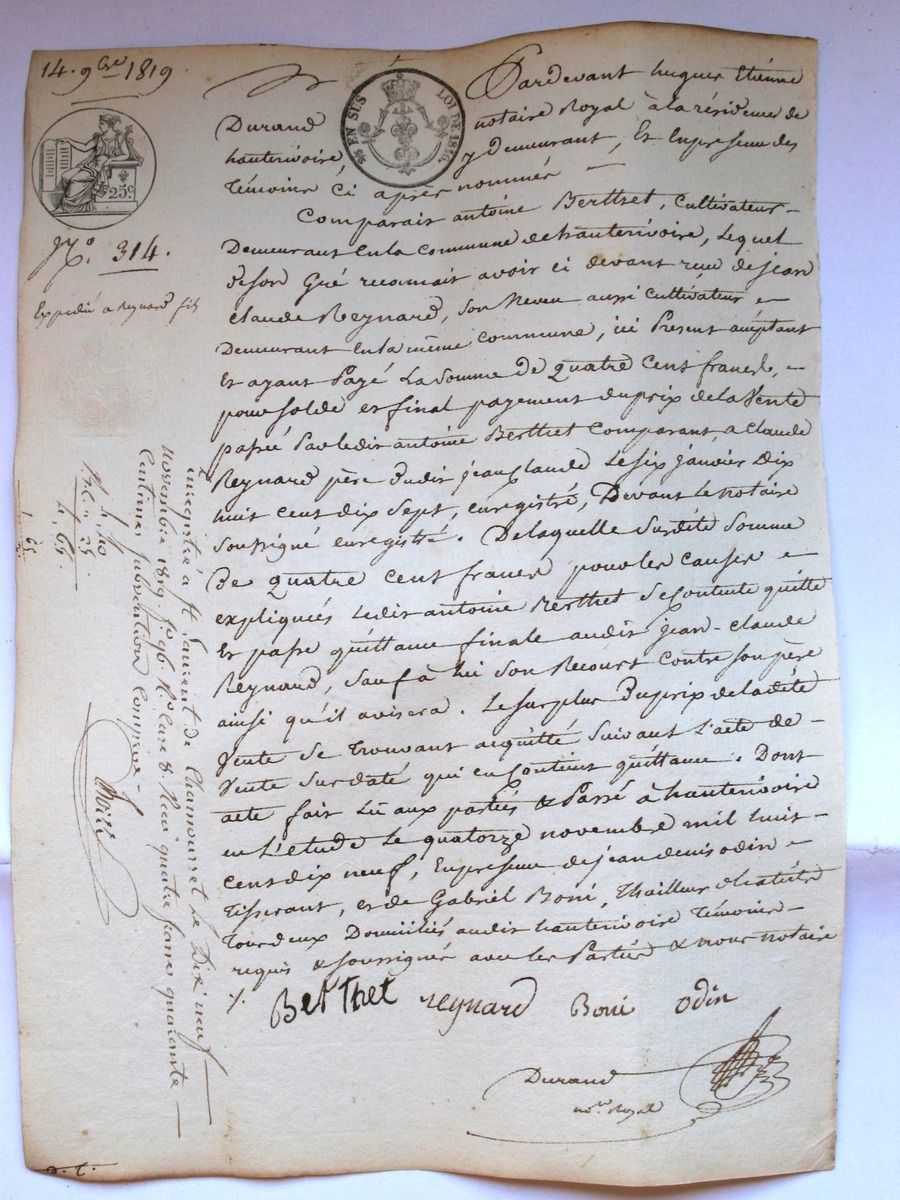 14. 9bre 1819.
EN SUS LOI DE 1816
25c.
N.º 314.
Expédié a Reynard fils
Pardevant hugues Etienne
Durand notaire Royal à la résidence de
hauterivoire y Demeurant, Et En presence des
Témoins Ci après nommés
Comparait antoine Berthet, Cultivateur
Demeurant En la Commune de hauterivoire, Lequel
de son Gré reconnait avoir ci devant reçu de jean
Claude Reynard, son Neveu aussi Cultivateur
Demeurant En la même Commune, ici Present acceptant
Et ayant Payé La Somme De quatre Cent francs,
pour solde et final payement du prix de la Vente
passée Par ledit antoine Berthet Comparant, a Claude
Reynard père dudit jean Claude Le six janvier Dix
huit cent dix sept, enregistré, Devant Le notaire
soussigné enregistré. De laquelle susdite somme
De quatre Cent francs pour les causes
expliquées Ledit antoine Berthet se Contente quitte
Et passe quittance finale audit jean-claude
Reynard, sauf à lui Son Recours Contre son père
ainsi qu'il avisera. Le surplus Du prix de la dite
Vente Se trouvant acquitté suivant L'acte de
Vente Susdaté qui en Contient quittance. Dont
acte fait Lu aux parties & Passé à hauterivoire
en L'étude Le quatorze novembre mil huit
Cent dix neuf, En presence de jean denis odin
Tisserant, et de Gabriel Boni, Thailleur d'habits
tous deux Domiciliés audit hauterivoire Témoins
requis & soussignés avec les Parties & nous notaire
Berthet reynard Boni odin
Durand
n.re Royal
Enregistré à St Laurent de Chamousset le Dix neuf
novembre 1819 f.º 96. R.º Case 8. Reçu quatre francs quarante
Centimes subvention Comprise
4. 40
25.
4. 65.
1
65